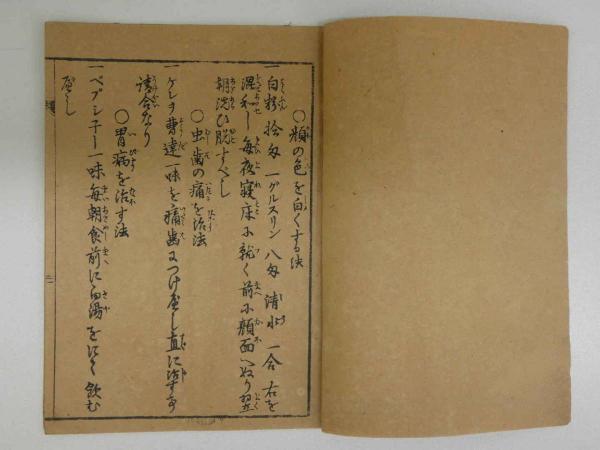 ○顔の色を白くする法
一白粉拾匁 一ゲルスリン八匁 清水一合 右を
混和し毎夜寝床に就く前に顔面へぬり翌
朝洗ひ脱すべし
○虫歯の痛を治法
一ケレヲ曹達一味を痛歯につけ
直に治する
請合なり
○胃病を治す法
一ペプシ子一味毎朝食前に白湯をにて飲む
べし